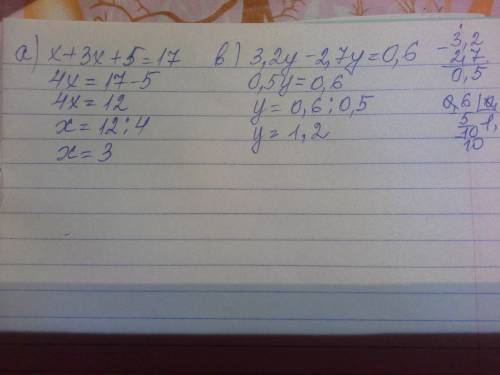 а) x+3x+5=17
4x=17-5
4x=12
x=12:4
x=3
в) 3,2y-2,7y=0,6
0,5y=0,6
y=0,6:0,5
y=1,2
-3,2
2,7
0,5
0,6|0,
5 1,
10
10